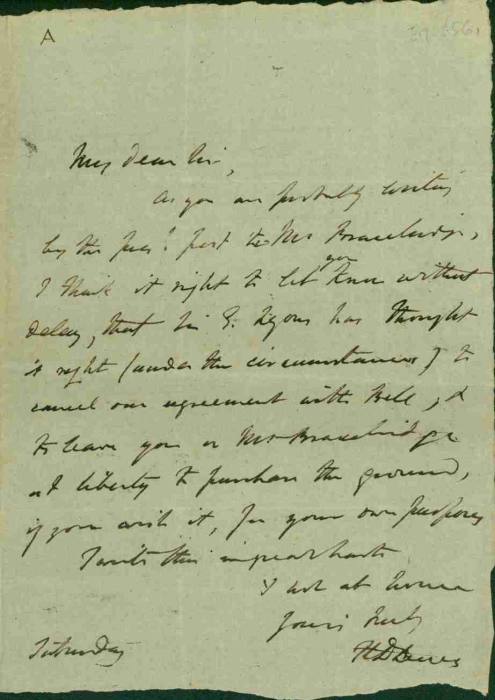 A
My dear Sir,
As you are probably writing
by this post to Mr Bracebridge,
I think it right to let you know without
delay, that Sir E. Lyons has thought
it right (under the circumstances) to
cancel our agreement with Bell, &
to leave you or Mr Bracebridge
at liberty to purchase the ground,
if you wish it, for your own purposes
I write this in great haste
& am at
Yours truly
Saturday